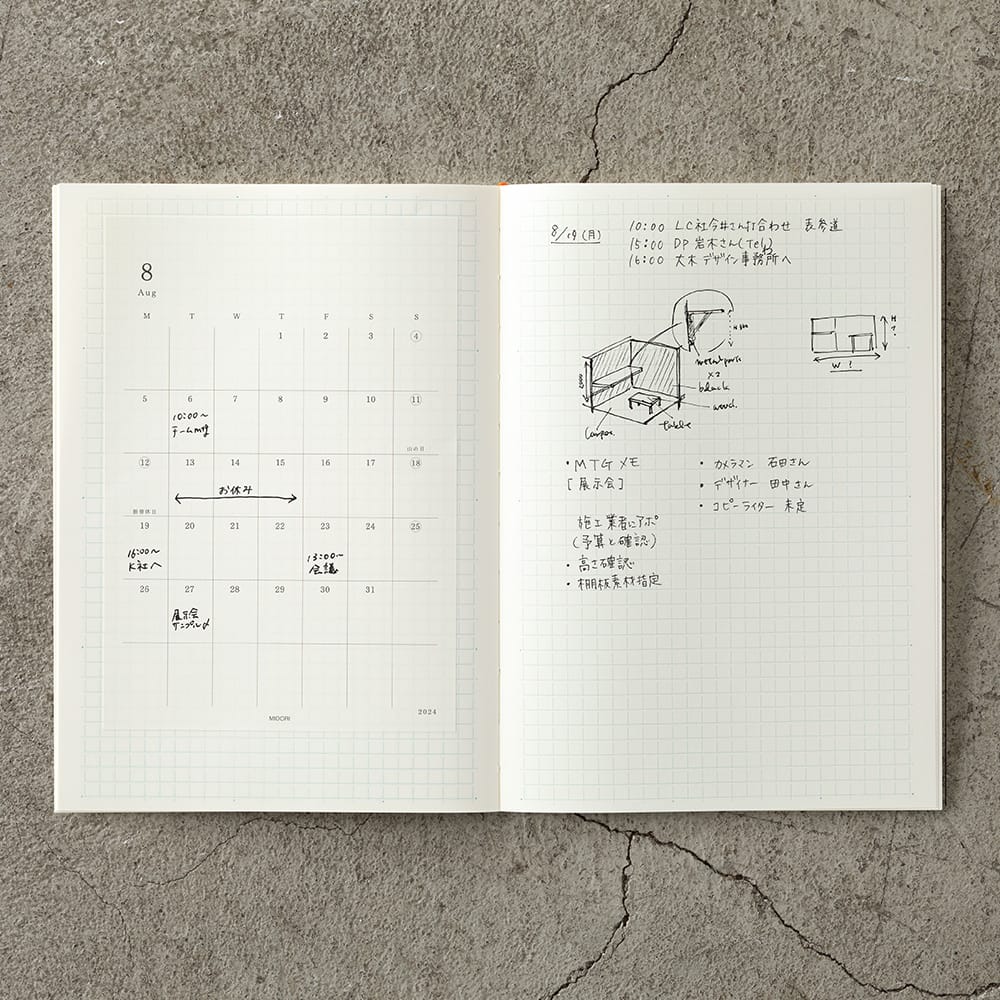 8
Aug
M T W T F S S
1 2 3 4
5 6 7 8 9 10 11
10:00〜
チームmtg
山の日
12 13 14 15 16 17 18
お休み
振替休日
19 20 21 22 23 24 25
16:00〜
K社へ
13:00〜
会議
26 27 28 29 30 31
展示会
サンプル〆
MIDORI
2024
8/19 (月)
10:00 LC社今井さん打合わせ 表参道
15:00 DP 岩木さん(Tel)
16:00 大木デザイン事務所へ
H
metal parts
×2
black
wood.
table
H?
W ?
・MTG メモ
[展示会]
施工業者にアポ
(予算と確認)
・高さ確認
・棚板素材指定
・カメラマン 石田さん
・デザイナー 田中さん
・コピーライター 未定